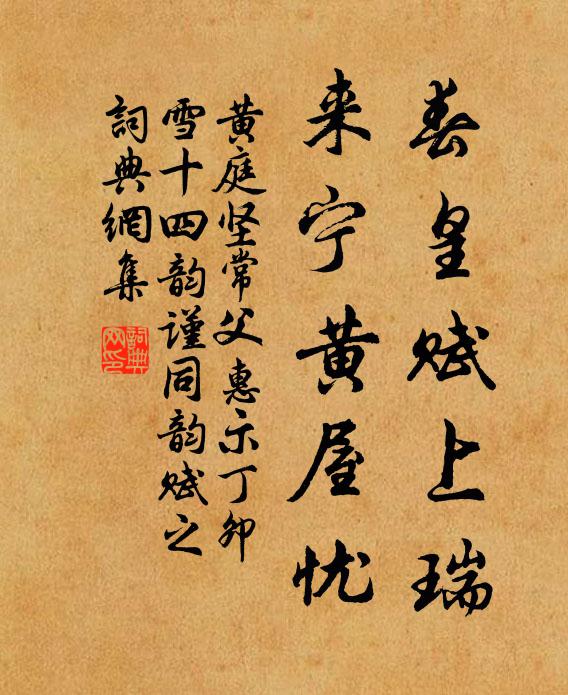 春皇赋上瑞
来宁黄屋忧
黄庭坚常父惠示丁卯
雪十四韵谨同韵赋之
词典网集
词典网印